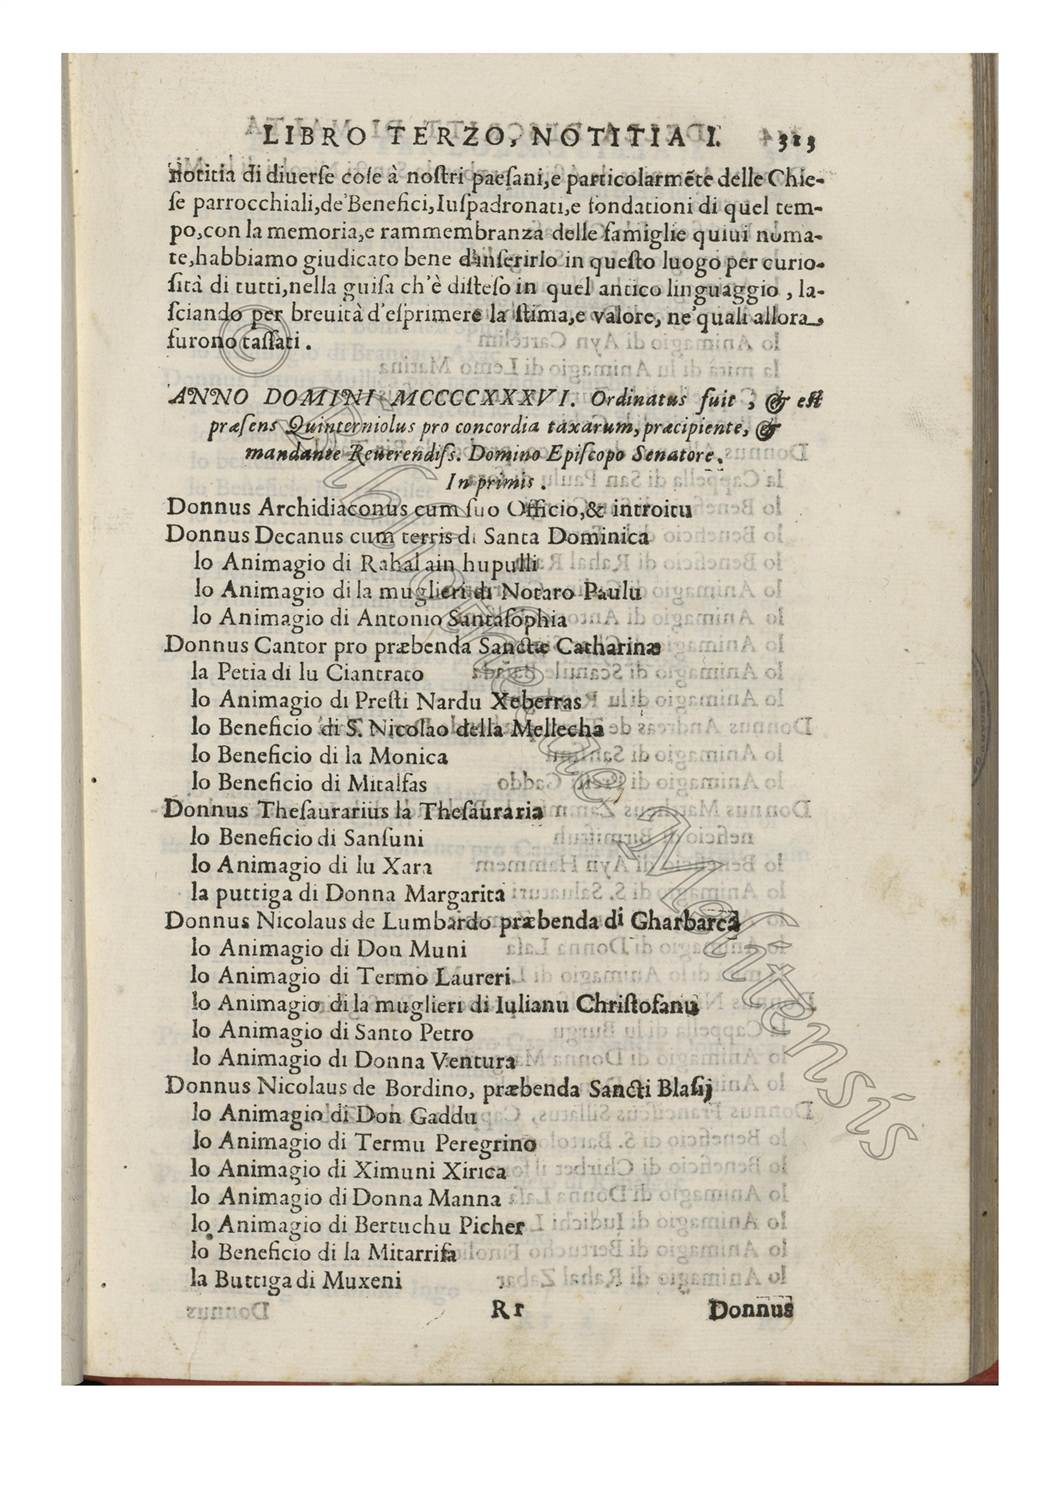 LIBRO TERZO, NOTITIA I. 313
notitia di diuerſe coſe à noſtri paeſani,e particolarmẽte delle Chie-
ſe parrocchiali,de'Benefici,Iuſpadronati,e fondationi di quel tem-
po,con la memoria,e rammembranza delle famiglie quiui noma-
te,habbiamo giudicato bene d'inſerirlo in queſto luogo per curio-
ſità di tutti,nella guiſa ch'è diſteſo in quel antico linguaggio , la-
ſciando per breuità d'eſprimere la ſtima,e valore, ne'quali allora
furono taſſati .
ANNO DOMINI MCCCCXXXVI. Ordinatus fuit , & eſt
præſens Quinterniolus pro concordia taxarum, præcipiente, &
mandante Reuerendiſs. Domino Epiſcopo Senatore.
In primis .
Donnus Archidiaconus cum ſuo Officio,& introitu
Donnus Decanus cum terris di Santa Dominica
lo Animagio di Rahal ain hupulli
lo Animagio di la muglieri di Notaro Paulu
lo Animagio di Antonio Santaſophia
Donnus Cantor pro præbenda Sanctæ Catharinæ
la Petia di lu Ciantrato
lo Animagio di Preſti Nardu Xeberras
lo Beneficio di S. Nicolao della Mellecha
lo Beneficio di la Monica
lo Beneficio di Mitalfas
Donnus Theſaurarius la Theſauraria
lo Beneficio di Sanſuni
lo Animagio di lu Xara
la puttiga di Donna Margarita
Donnus Nicolaus de Lumbardo præbenda di Gharbarca
lo Animagio di Don Muni
lo Animagio di Termo Laureri
lo Animagio di la muglieri di Iulianu Chriſtofanu
lo Animagio di Santo Petro
lo Animagio di Donna Ventura
Donnus Nicolaus de Bordino, præbenda Sancti Blaſij
lo Animagio di Don Gaddu
lo Animagio di Termu Peregrino
lo Animagio di Ximuni Xirica
lo Animagio di Donna Manna
lo Animagio di Bertuchu Picher
lo Beneficio di la Mitarriſa
la Buttiga di Muxeni
Rr Donnus
© Bibliotheca Melitensis